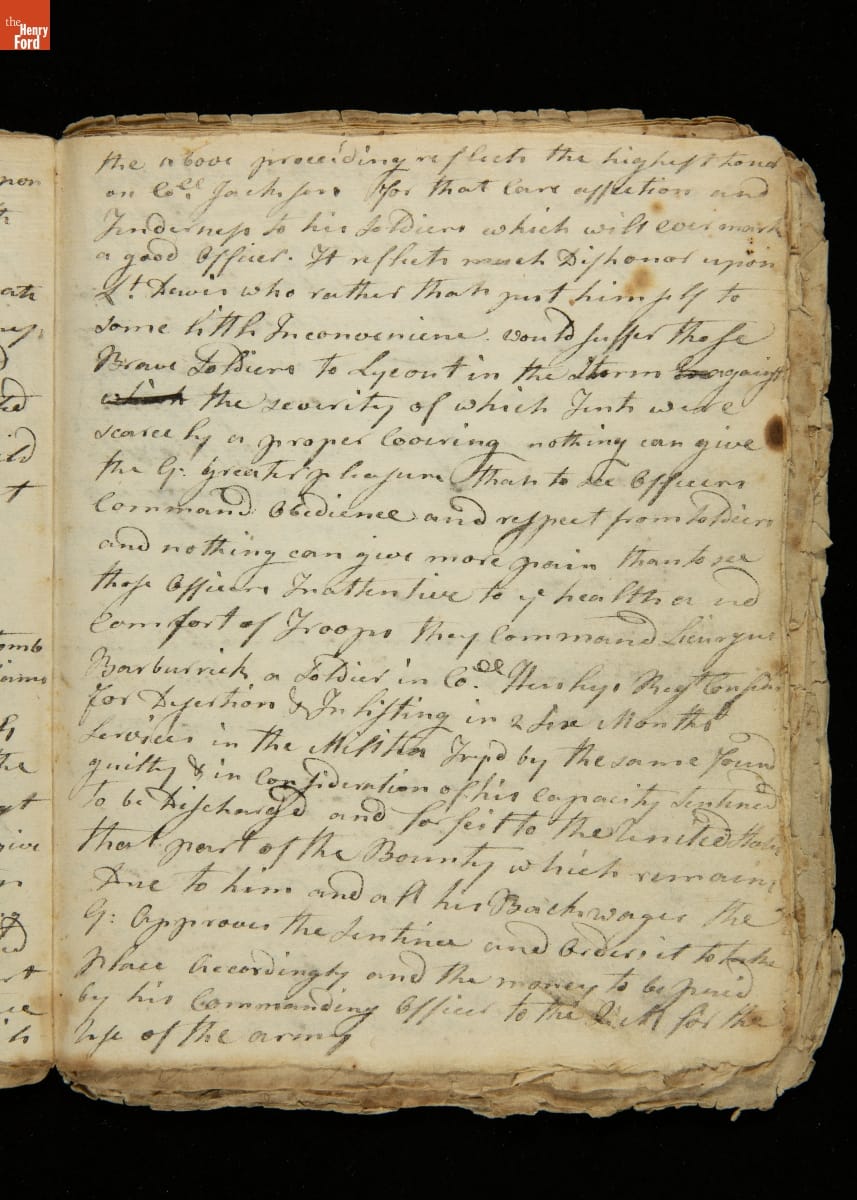 the Henry Ford
the above proceiding reflects the highest honor
on Coll. Jackson for that Care affection and
Tenderness to his Soldiers which will ever mark
a good Officer. It reflects much Dishonor upon
Lt. Dewis who rather than put himself to
some little Inconvenienc. would suffer those
Brave Soldiers to Lye out in the Storm against
which the severity of which Tents were
scarce ly a proper Covering nothing can give
the G: greater pleasure Than to see Officers
Command Obedience and respect from Soldiers
and nothing can give more pain than to see
those Officers Inattentive to ye health a nd
Comfort of Troops they Command
Barburrick a Soldier in Coll. Regt
for Desertion & Inlisting in 2 Six Months
Services in the Militia Tryd by the same found
guilty & in Consideration of his Capacity Sentined
to be Discharg'd and forfeit to the United States
that part of the Bounty which remains
Due to him and all his Back wages the
G: Approves the Sentince and Orders it to take
place Accordingly and the money to be paid
by his Commanding Officer to the for the
Use of the army